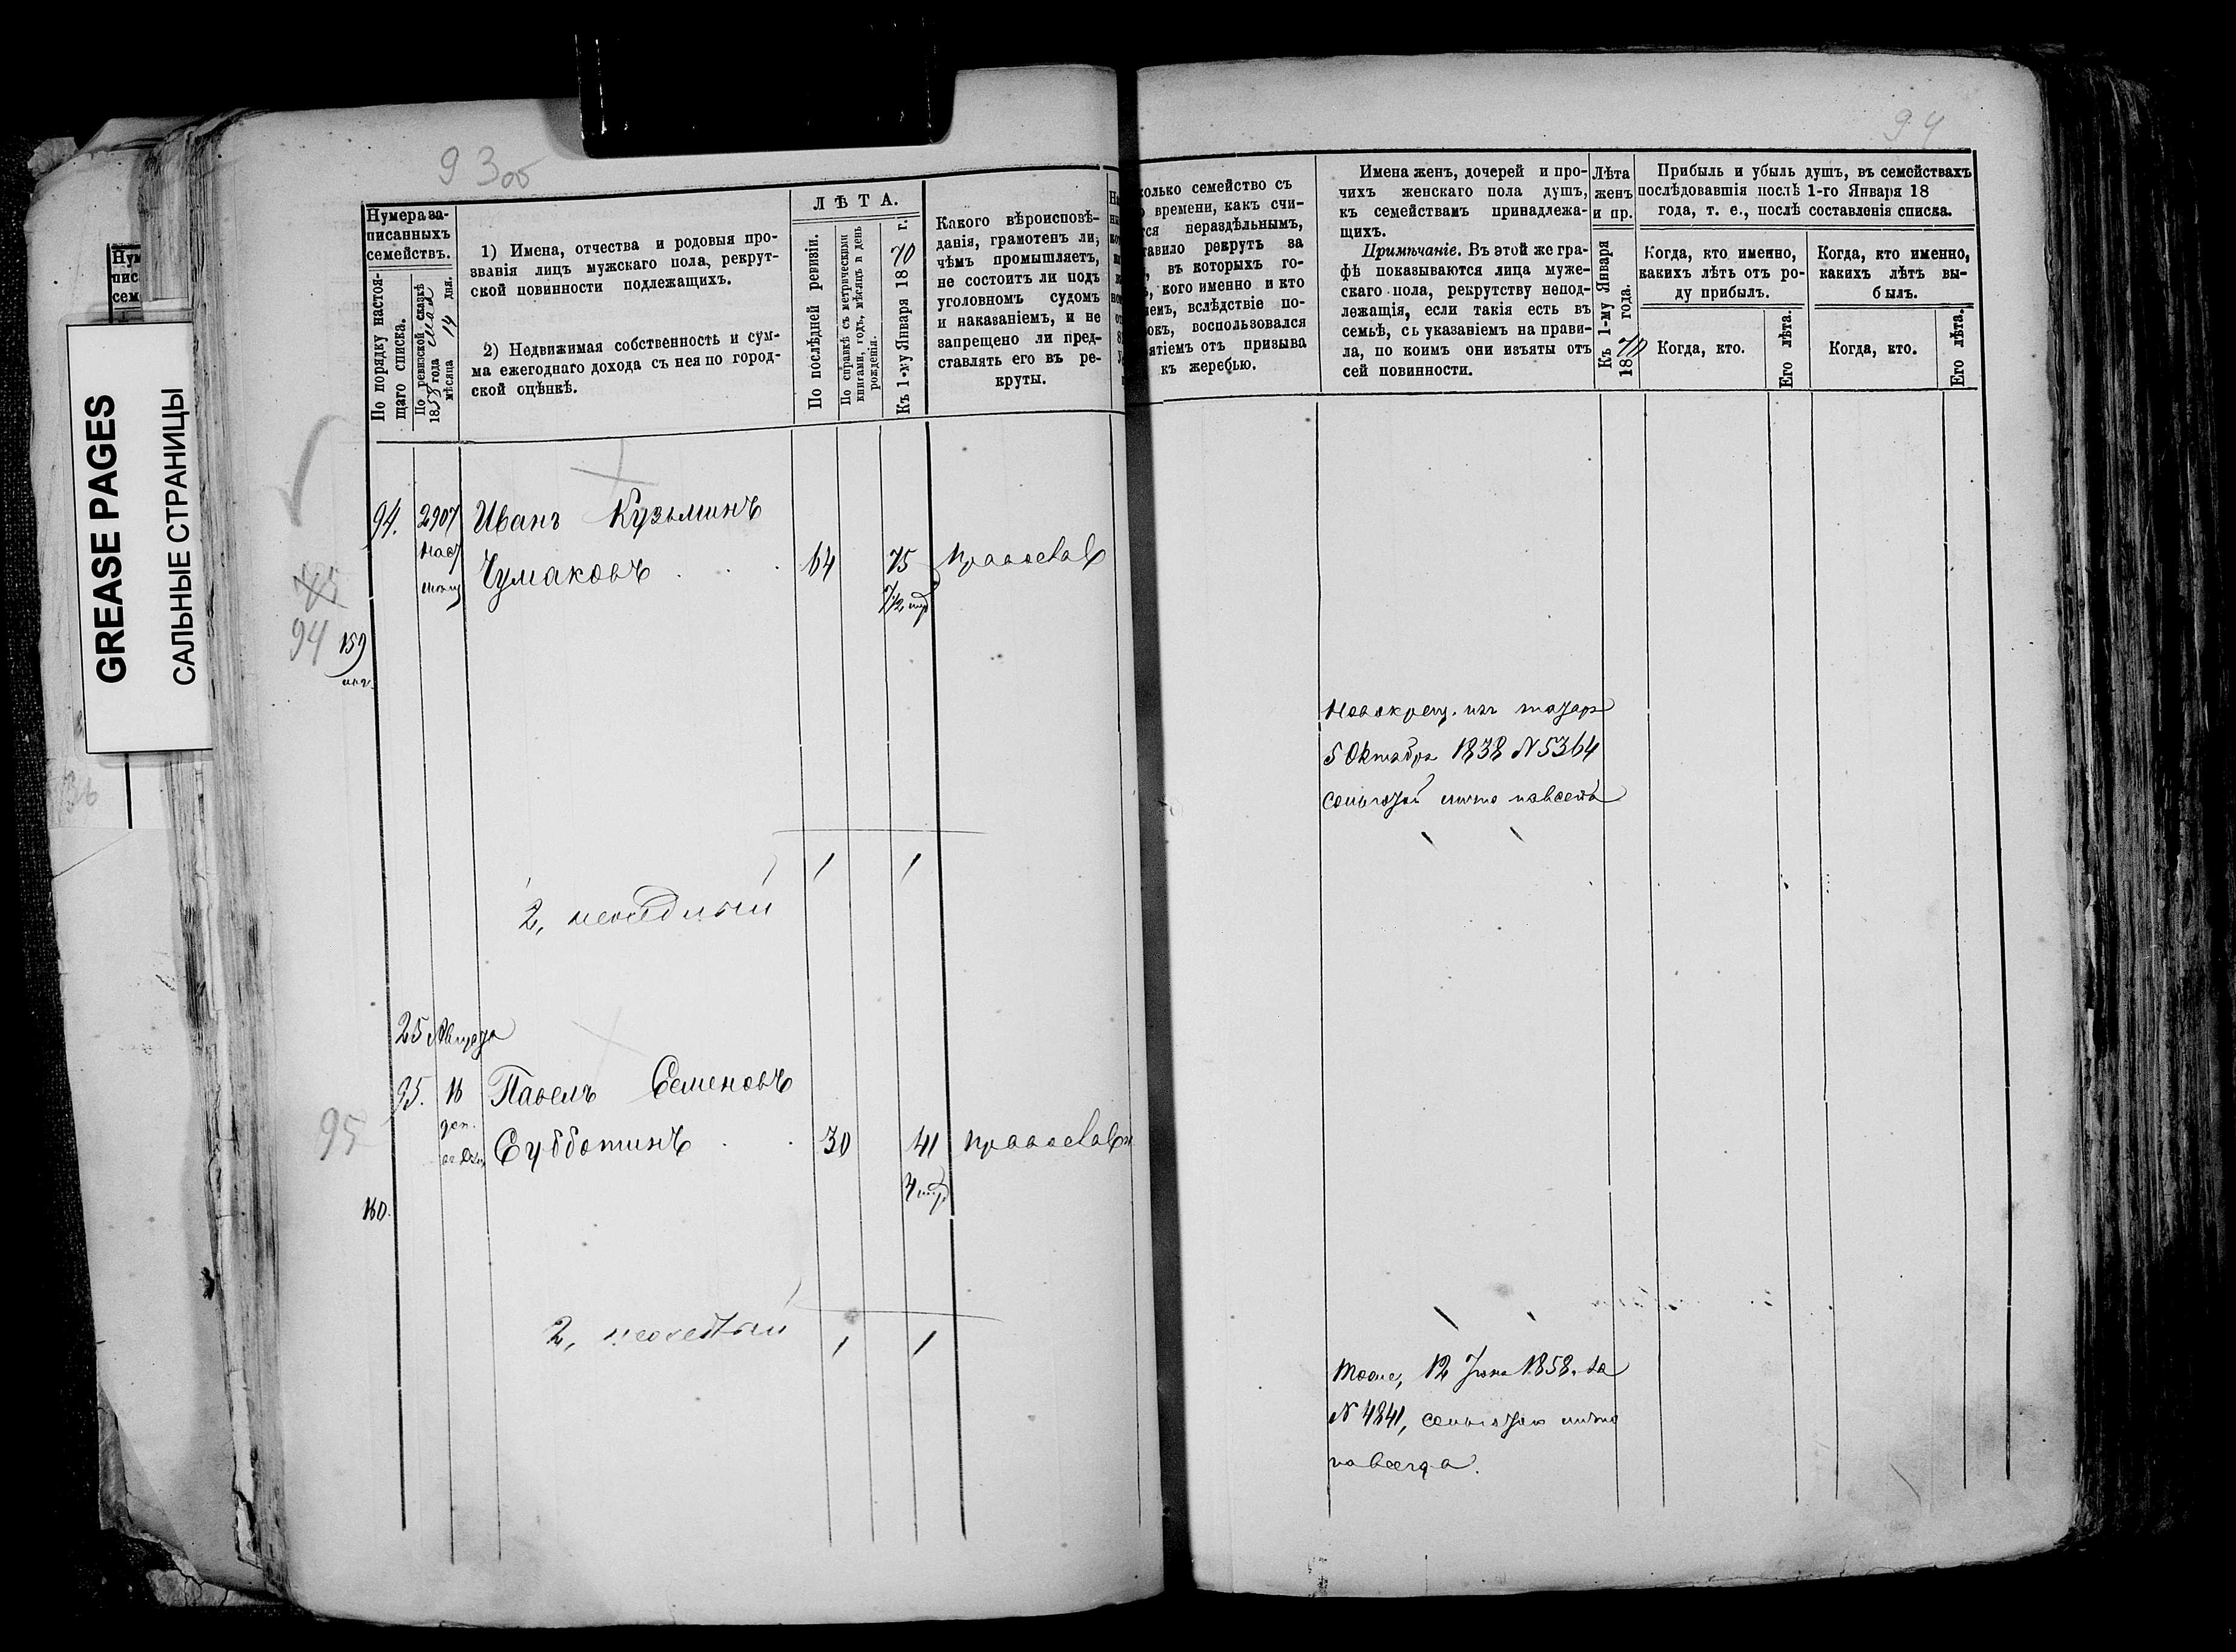 GREASE PAGES
САЛЬНЫЕ СТРАНИЦЫ
93 об
Нумера за-
писанныхъ
семействъ.
По порядку настоя-
щаго списка.
По ревизской сказкѣ
1858 года
мѣсяца 14 дня.
1) Имена, отчества и родовыя про-
званія лицъ мужскаго пола, рекрут-
ской повинности подлежащихъ.
2) Недвижимая собственность и сум-
ма ежегоднаго дохода съ нея по город-
ской оцѣнкѣ.
ЛѢТА.
По послѣдней ревизіи.
По справкѣ съ метрическими
книгами, годъ, мѣсяцъ и день
рожденія.
Къ 1-му Января 1870 г.
Какого вѣроисповѣ-
данія, грамотенъ ли,
чѣмъ промышляетъ,
не состоитъ ли подъ
уголовномъ судомъ
и наказаніемъ, и не
запрещено ли пред-
ставлять его въ ре-
круты.
94. 2907 Иванъ Кузьминъ
Чумаковъ 64 75
94 159
1 1
2,
25
95. 16 Павелъ Семеновъ
95 Субботинъ 30 41
160.
2, 1 1
94
колько семейство съ
времени, какъ счи-
тся нераздѣльнымъ,
тавило рекрутъ за
, въ которыхъ го-
, кого именно и кто
емъ, вслѣдствіе по-
окъ, воспользовался
ятіемъ отъ призыва
къ жеребью.
Имена женъ, дочерей и про-
чихъ женскаго пола душъ,
къ семействамъ принадлежа-
щихъ.
Примѣчаніе. Въ этой же гра-
фѣ показываются лица муже-
скаго пола, рекрутству непод-
лежащія, если такія есть въ
семьѣ, съ указаніемъ на прави-
ла, по коимъ они изъяты отъ
сей повинности.
Лѣта
женъ
и пр.
Къ 1-му Января
1870 года.
Прибыль и убыль душъ, въ семействахъ
послѣдовавшія послѣ 1-го Января 18
года, т. е., послѣ составленія списка.
Когда, кто именно,
какихъ лѣтъ отъ ро-
ду прибылъ.
Когда, кто.
Его лѣта.
Когда, кто именно,
какихъ лѣтъ вы-
былъ.
Когда, кто.
Его лѣта.
Новокрещ. изъ татаръ
5 Октября 1838 N 5364
12 Іюня 1858. за
N 4841,
навсегда.